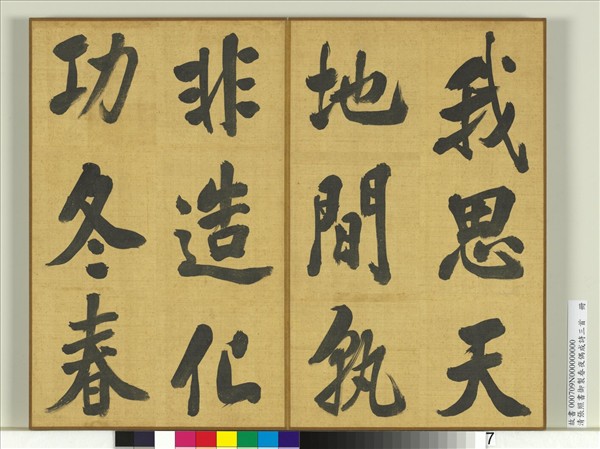 我思天
地間孰
非造化
功冬春
故書000709N000000000
清張照書御製春夜偶成詩三首 冊
7